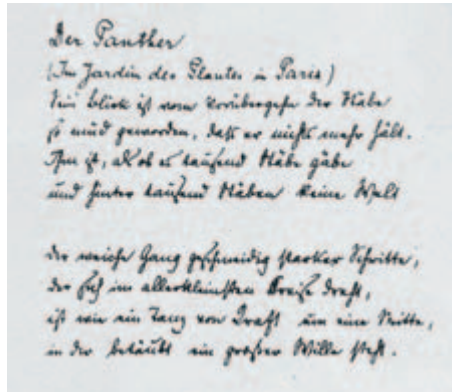 Der Panther
(Im Jardin des Plantes in Paris)
Sein Blick ist vom Vorübergehn der Stäbe
so müd geworden, daß er nichts mehr hält.
Ihm ist, als ob es tausend Stäbe gäbe
und hinter tausend Stäben keine Welt
Der weiche Gang geschmeidig starker Schritte,
der sich im allerkleinsten Kreise dreht,
ist wie ein Tanz von Kraft um eine Mitte,
in der betäubt ein großer Wille steht.